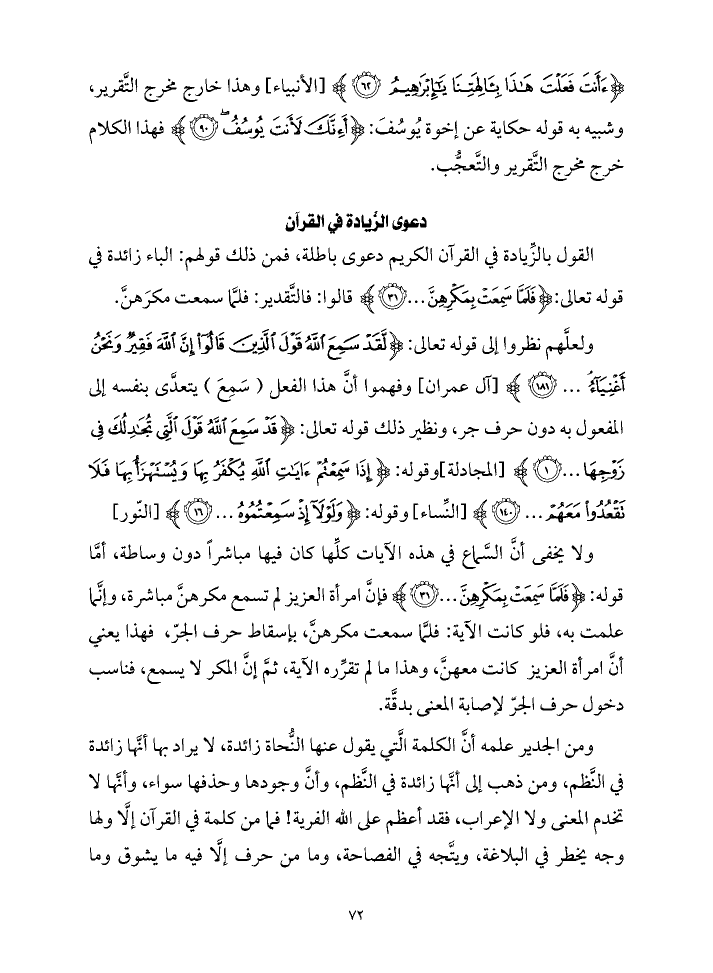 ﴿ ءَأَنتَ فَعَلْتَ هَٰذَا بِـَٔالِهَتِنَا يَٰٓإِبْرَٰهِيمُ ۝٦٢ ﴾ [الأنبياء] وهذا خارج مخرج التَّقرير،
وشبيه به قوله حكاية عن إخوة يُوسُفَ: ﴿ أَءِنَّكَ لَأَنتَ يُوسُفُ ۖ ۝٩٠ ﴾ فهذا الكلام
خرج مخرج التَّقرير والتَّعجُّب.
دعوى الزِّيادة في القرآن
القول بالزِّيادة في القرآن الكريم دعوى باطلة، فمن ذلك قولهم: الباء زائدة في
قوله تعالى: ﴿ فَلَمَّا سَمِعَتْ بِمَكْرِهِنَّ ... ۝٣١ ﴾ قالوا: فالتَّقدير: فلمَّا سمعت مكرَهنَّ.
ولعلَّهم نظروا إلى قوله تعالى: ﴿ لَّقَدْ سَمِعَ ٱللَّهُ قَوْلَ ٱلَّذِينَ قَالُوٓا۟ إِنَّ ٱللَّهَ فَقِيرٌ وَنَحْنُ
أَغْنِيَآءُ ... ۝١٨١ ﴾ [آل عمران] وفهموا أنَّ هذا الفعل ( سَمِعَ ) يتعدَّى بنفسه إلى
المفعول به دون حرف جر، ونظير ذلك قوله تعالى: ﴿ قَدْ سَمِعَ ٱللَّهُ قَوْلَ ٱلَّتِى تُجَٰدِلُكَ فِى
زَوْجِهَا ... ۝١ ﴾ [المجادلة] وقوله: ﴿ إِذَا سَمِعْتُمْ ءَايَٰتِ ٱللَّهِ يُكْفَرُ بِهَا وَيُسْتَهْزَأُ بِهَا فَلَا
تَقْعُدُوا۟ مَعَهُمْ ... ۝١٤٠ ﴾ [النِّساء] وقوله: ﴿ وَلَوْلَآ إِذْ سَمِعْتُمُوهُ ... ۝١٦ ﴾ [النّور]
ولا يخفى أنَّ السَّماع في هذه الآيات كلِّها كان فيها مباشراً دون وساطة، أمَّا
قوله: ﴿ فَلَمَّا سَمِعَتْ بِمَكْرِهِنَّ ... ۝٣١ ﴾ فإنَّ امرأة العزيز لم تسمع مكرهنَّ مباشرة، وإنَّما
علمت به، فلو كانت الآية: فلمَّا سمعت مكرهنَّ، بإسقاط حرف الجرّ، فهذا يعني
أنَّ امرأة العزيز كانت معهنَّ، وهذا ما لم تقرِّره الآية، ثمَّ إنَّ المكر لا يسمع، فناسب
دخول حرف الجرّ لإصابة المعنى بدقَّة.
ومن الجدير علمه أنَّ الكلمة الَّتي يقول عنها النُّحاة زائدة، لا يراد بها أنَّها زائدة
في النَّظم، ومن ذهب إلى أنَّها زائدة في النَّظم، وأنَّ وجودها وحذفها سواء، وأنَّها لا
تخدم المعنى ولا الإعراب، فقد أعظم على الله الفرية! فما من كلمة في القرآن إلَّا ولها
وجه يخطر في البلاغة، ويتَّجه في الفصاحة، وما من حرف إلَّا فيه ما يشوق وما
٧٢